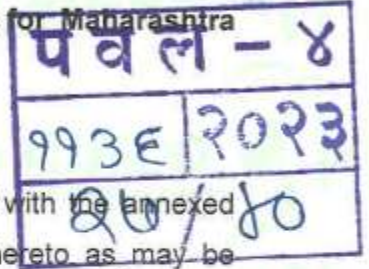 for Maharashtra
पवल - ४
११३६ २०२३
with the annexed
२७/४०
hereto as may be